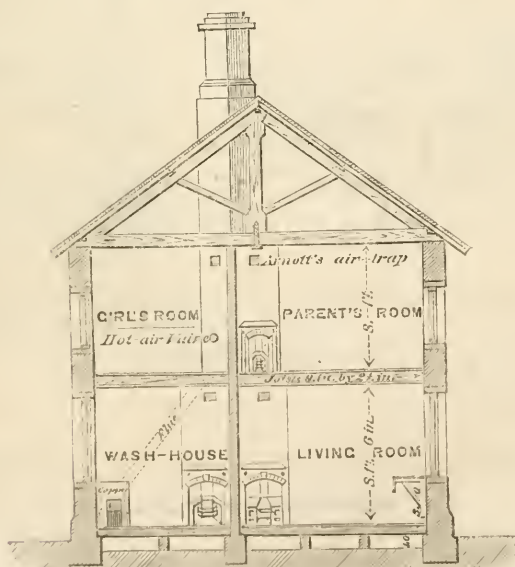 Arnott's air-trap
GIRL'S ROOM
PARENT'S ROOM
8.ft.
Hot-air
Joists 9.in. by 2½.in.
Flue
WASH-HOUSE
LIVING ROOM
8.ft. 6 in.
Copper